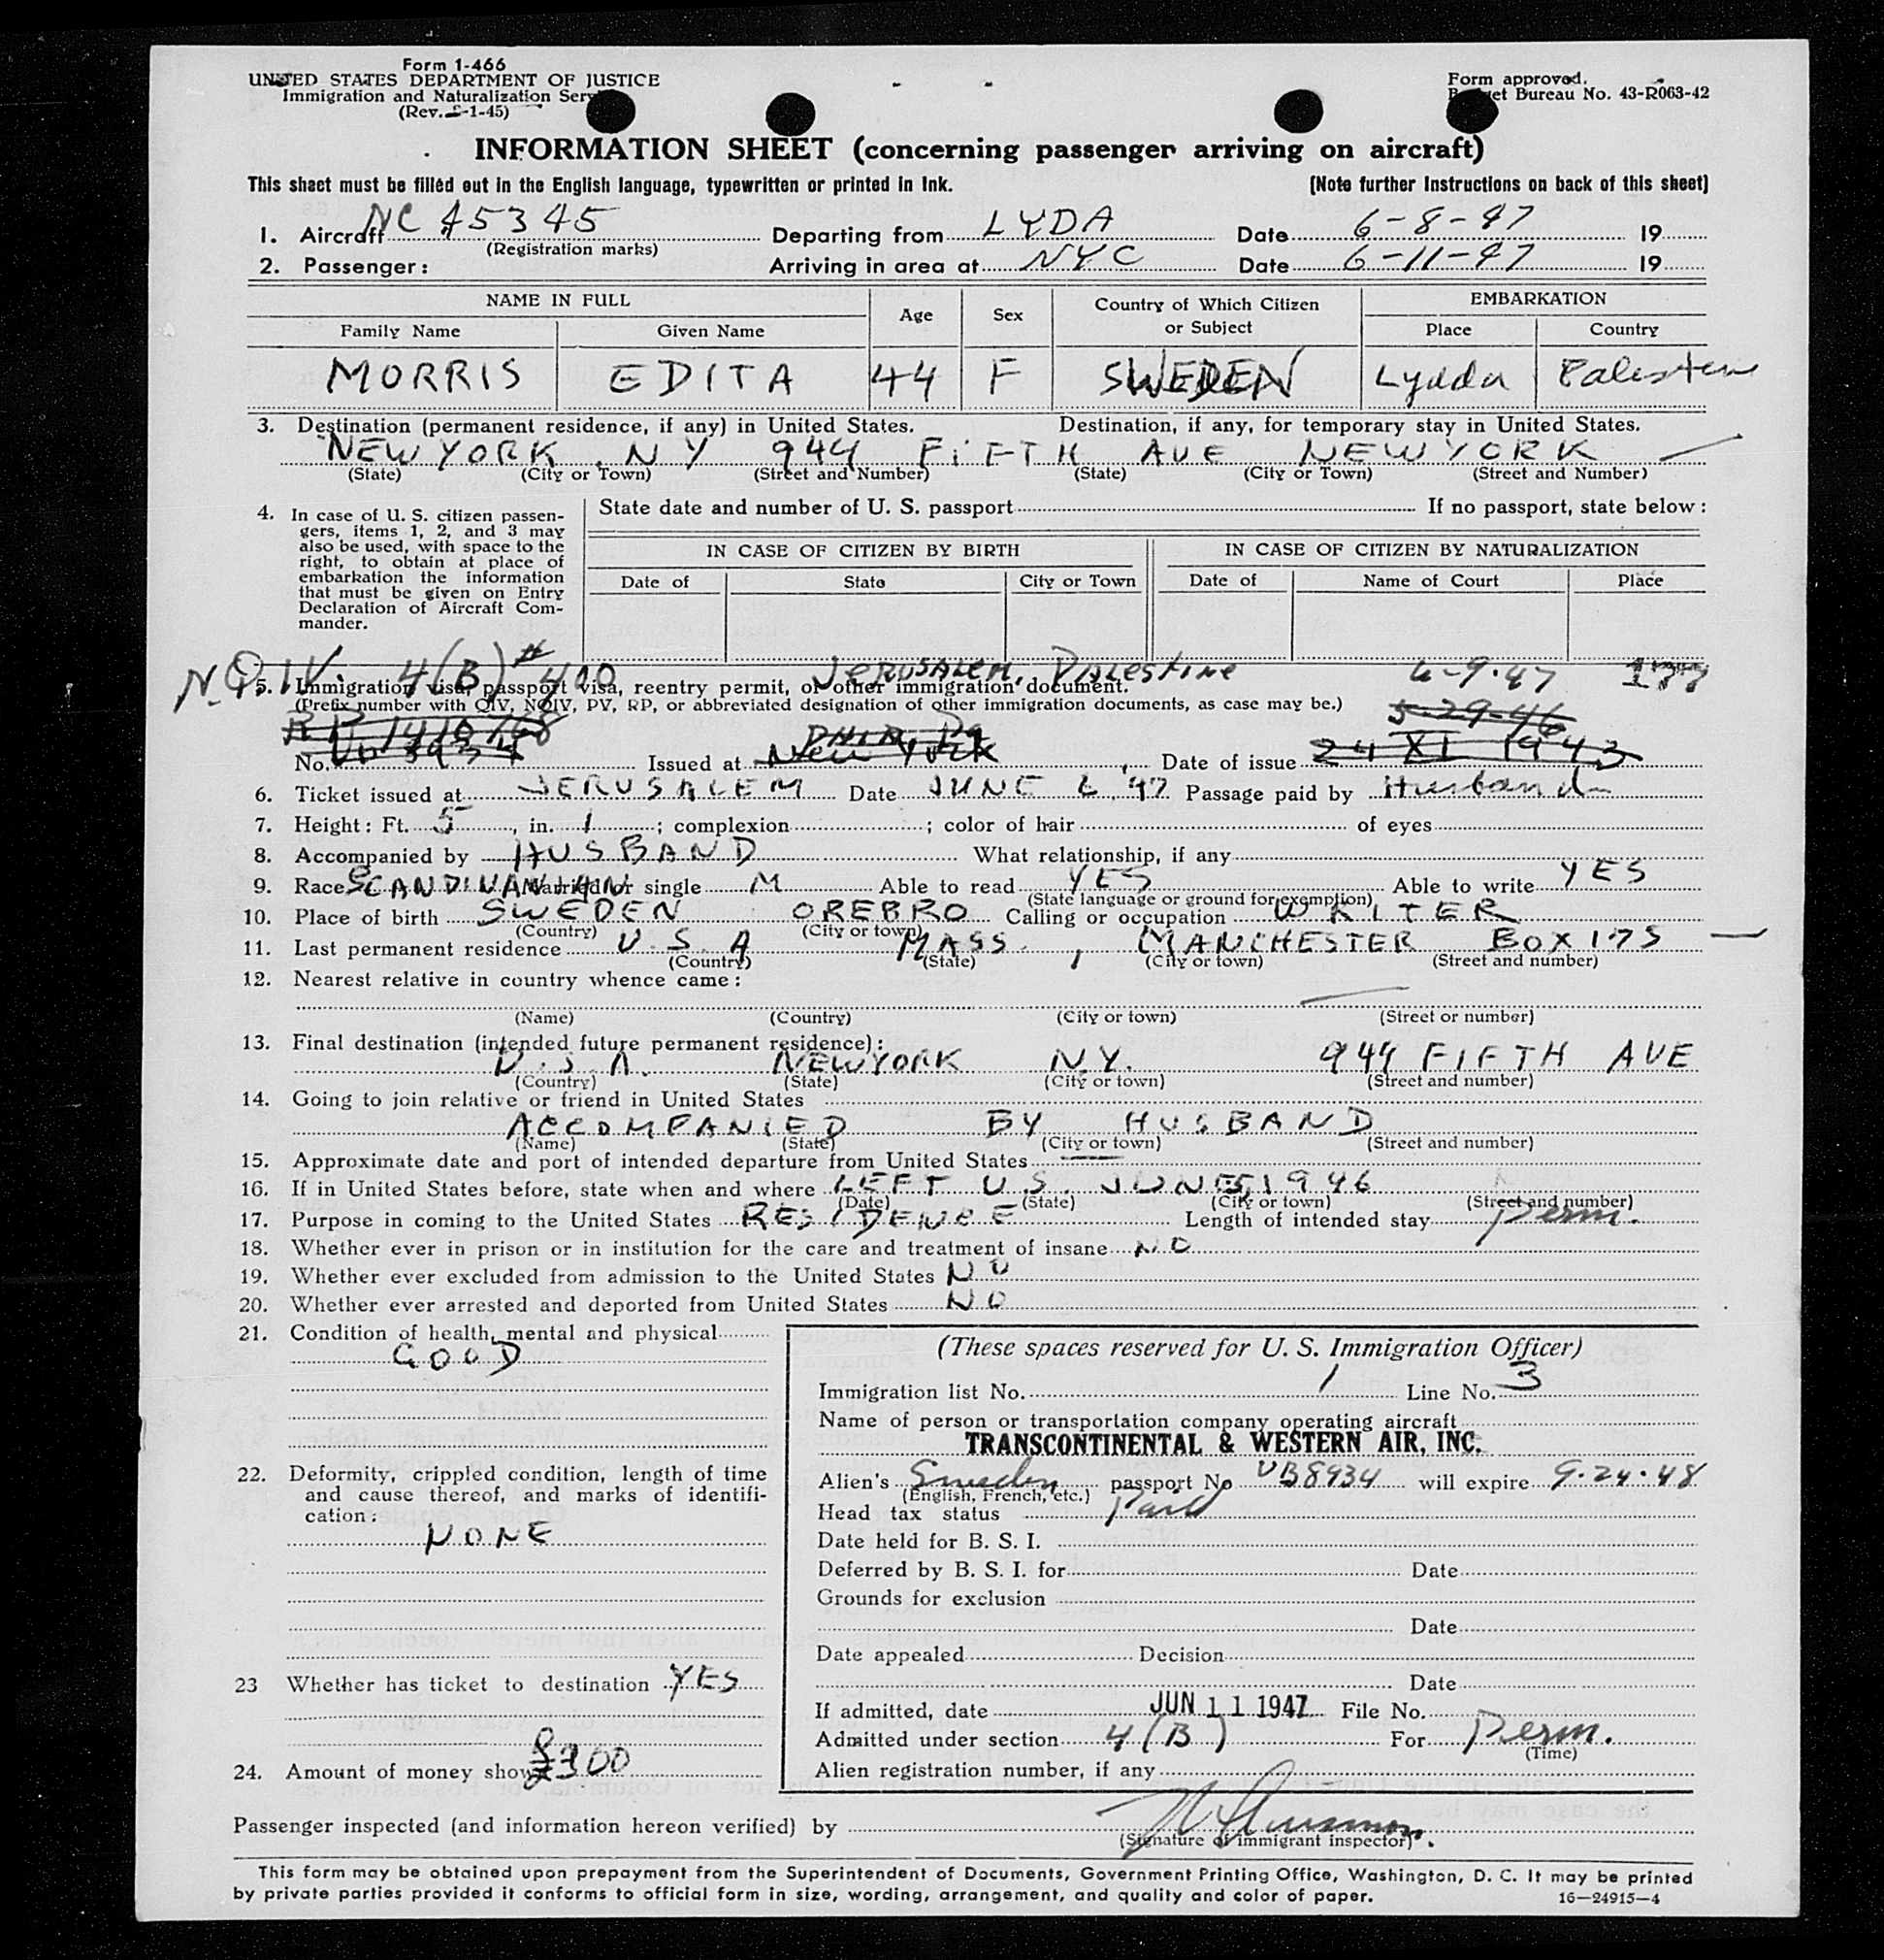 Form 1-466
UNITED STATES DEPARTMENT OF JUSTICE
Immigration and Naturalization Serv
(Rev. -1-45)
Form approved.
B et Bureau No. 43-R063-42
INFORMATION SHEET (concerning passenger arriving on aircraft)
This sheet must be filled out in the English language, typewritten or printed in ink. (Note further Instructions on back of this sheet)
1. Aircraft NC 45345 Departing from LYDA Date 6-8-47 19
(Registration marks)
2. Passenger: Arriving in area at NYC Date 6-11-47 19
NAME IN FULL Age Sex Country of Which Citizen or Subject EMBARKATION
Family Name Given Name Place Country
MORRIS EDITA 44 F SWEDEN Lydda Palestine
3. Destination (permanent residence, if any) in United States. Destination, if any, for temporary stay in United States.
NEW YORK, NY 944 FIFTH AVE NEW YORK
(State) (City or Town) (Street and Number) (State) (City or Town) (Street and Number)
4. In case of U. S. citizen passen-
gers, items 1, 2, and 3 may
also be used, with space to the
right, to obtain at place of
embarkation the information
that must be given on Entry
Declaration of Aircraft Com-
mander.
State date and number of U. S. passport If no passport, state below:
IN CASE OF CITIZEN BY BIRTH IN CASE OF CITIZEN BY NATURALIZATION
Date of State City or Town Date of Name of Court Place
N.Q.IV. 4(B) # 400 JERUSALEM, PALESTINE 6-9-47 177
5. Immigration visa, passport visa, reentry permit, or other immigration document.
(Prefix number with QIV, NQIV, PV, RP, or abbreviated designation of other immigration documents, as case may be.)
RP 1410768 PHILA, Pa 5-29-46
No. Issued at New York Date of issue 24 XI 1943
6. Ticket issued at JERUSALEM Date JUNE 6, 47 Passage paid by Husband
7. Height: Ft. 5, in. 1; complexion ; color of hair of eyes
8. Accompanied by HUSBAND What relationship, if any
9. Race SCANDINAVIAN Married or single M Able to read YES Able to write YES
(State language or ground for exemption)
10. Place of birth SWEDEN OREBRO Calling or occupation WRITER
(Country) (City or town)
11. Last permanent residence U.S.A MASS., MANCHESTER BOX 175
(Country) (State) (City or town) (Street and number)
12. Nearest relative in country whence came:
(Name) (Country) (City or town) (Street or number)
13. Final destination (intended future permanent residence):
U.S.A. NEWYORK N.Y. 944 FIFTH AVE
(Country) (State) (City or town) (Street and number)
14. Going to join relative or friend in United States
ACCOMPANIED BY HUSBAND
(Name) (State) (City or town) (Street and number)
15. Approximate date and port of intended departure from United States
16. If in United States before, state when and where LEFT U.S. JUNE 1946
(Date) (State) (City or town) (Street and number)
17. Purpose in coming to the United States RESIDENCE Length of intended stay perm.
18. Whether ever in prison or in institution for the care and treatment of insane NO
19. Whether ever excluded from admission to the United States NO
20. Whether ever arrested and deported from United States NO
21. Condition of health, mental and physical
GOOD
22. Deformity, crippled condition, length of time
and cause thereof, and marks of identifi-
cation:
NONE
23 Whether has ticket to destination YES
24. Amount of money shown
(These spaces reserved for U. S. Immigration Officer)
Immigration list No. 1 Line No. 3
Name of person or transportation company operating aircraft
TRANSCONTINENTAL & WESTERN AIR, INC.
Alien's Sweden passport No UB8934 will expire 9-24-48
(English, French, etc.)
Head tax status Paid
Date held for B. S. I.
Deferred by B. S. I. for Date
Grounds for exclusion
Date
Date appealed Decision
Date
If admitted, date JUN 11 1947 File No.
Admitted under section 4(B) For Perm.
(Time)
Alien registration number, if any
Passenger inspected (and information hereon verified) by
(Signature of immigrant inspector)
This form may be obtained upon prepayment from the Superintendent of Documents, Government Printing Office, Washington, D. C. It may be printed
by private parties provided it conforms to official form in size, wording, arrangement, and quality and color of paper. 16—24915-4